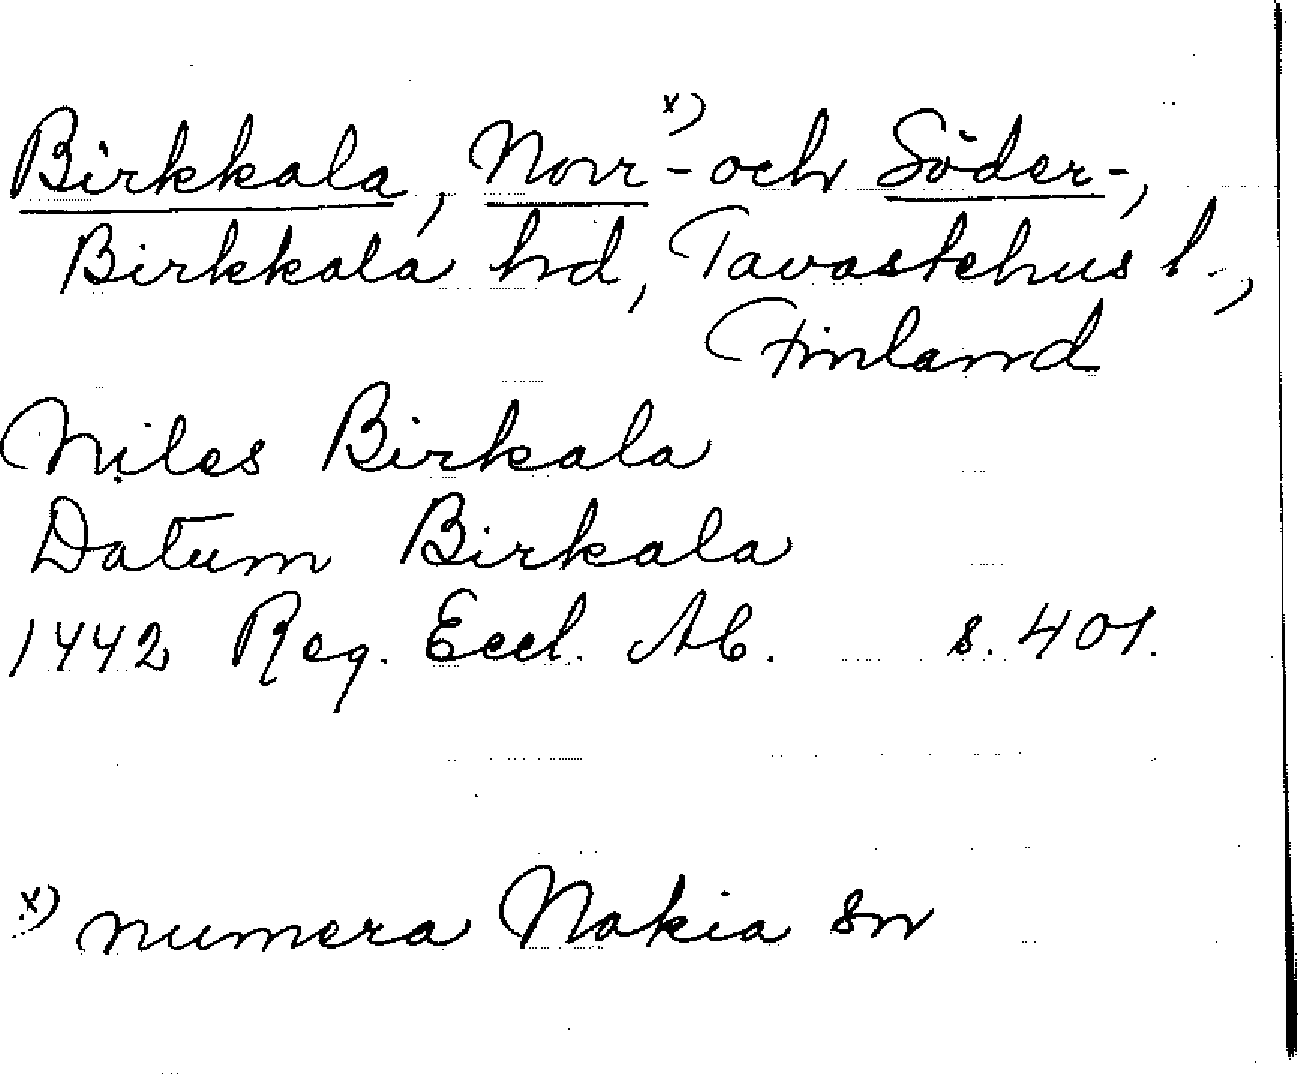 Birkkala, Norr-x) och Söder-,
Birkkala hd, Tavastehus l.,
Finland
Miles Birkala
Datum Birkala
1442 Reg. Eccl. Ab. s. 401.
x) numera Nokia sn